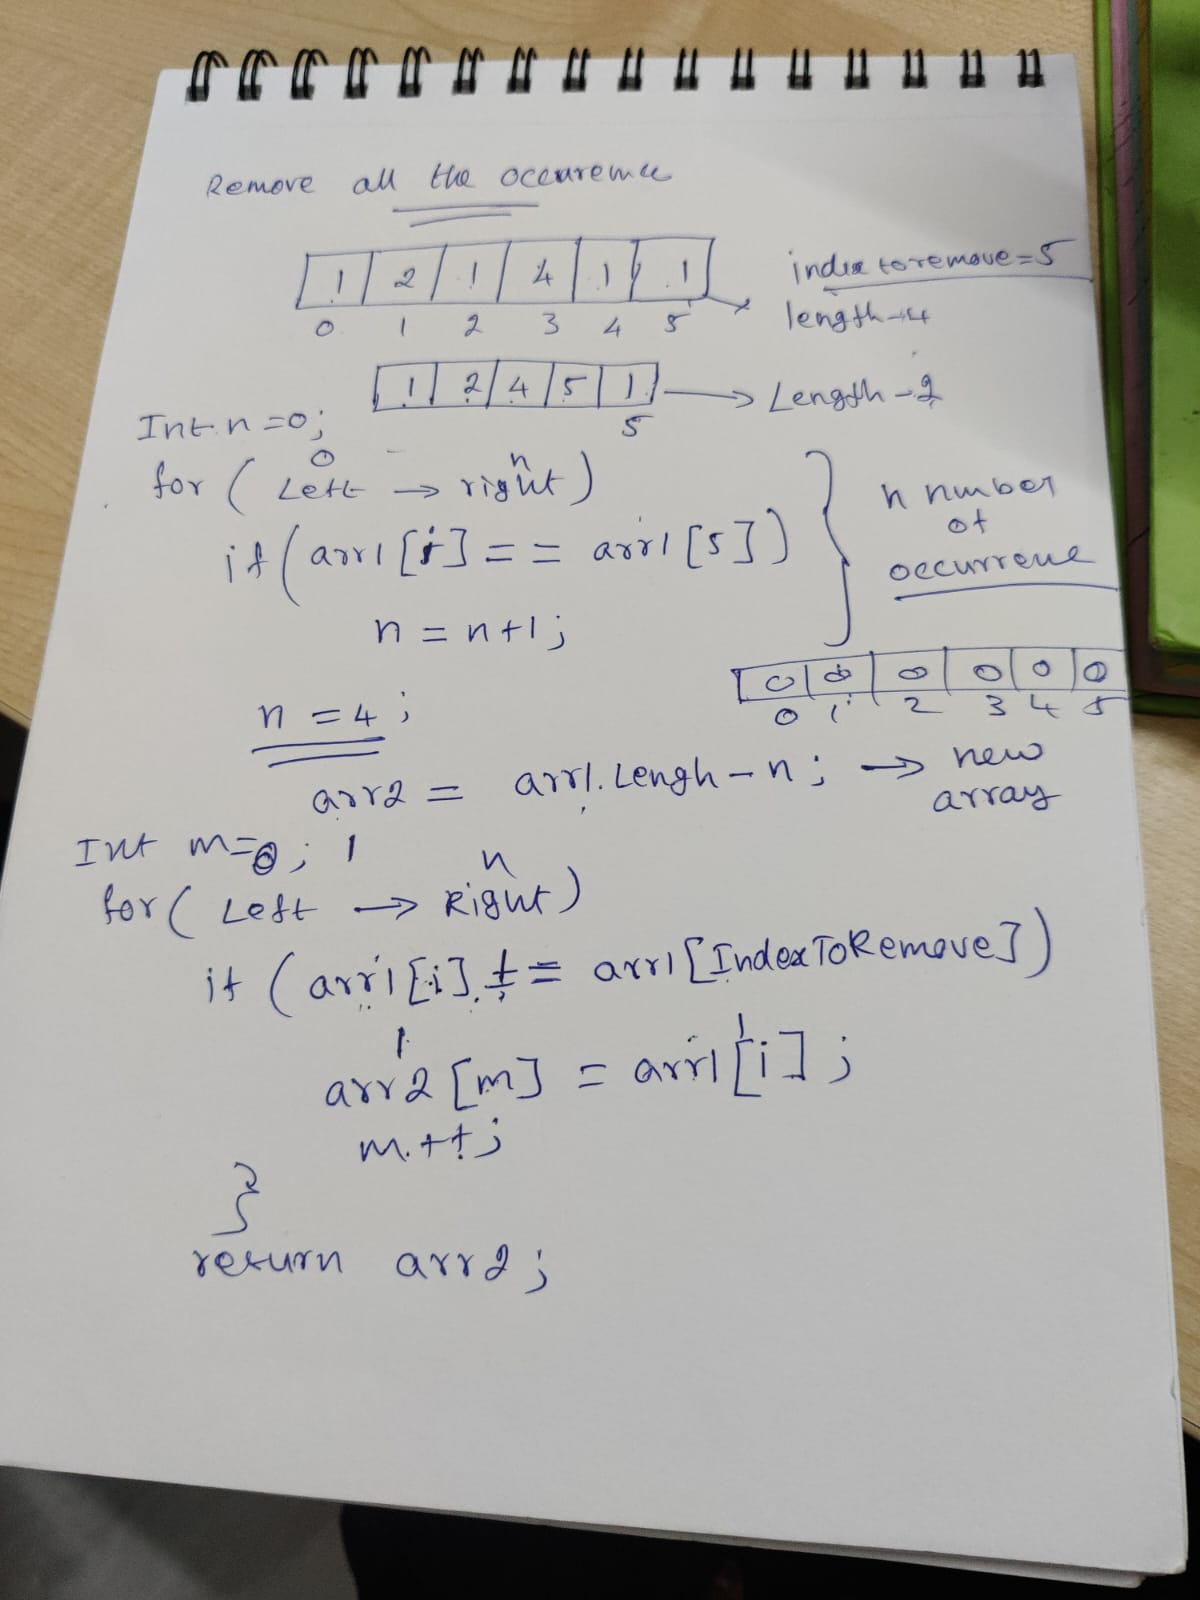 Remove all the occuremce
1 2 1 4 1 1
0 1 2 3 4 5
index to remove = 5
length - 4
1 2 4 5 1 → Length - 2
5
Int n = 0;
0 n
for ( Left → right )
if ( arr1 [i] == arr1 [5] )
n = n+1;
n number
of
occurrence
n = 4;
0 0 0 0 0 0
0 1 2 3 4 5
arr2 = arr1. Lengh - n; → new
array
Int m = 0; 1
n
for ( Left → Right )
if ( arr1 [i] != arr1 [IndexToRemove] )
1 1
arr2 [m] = arr1 [i];
m++;
}
return arr2;